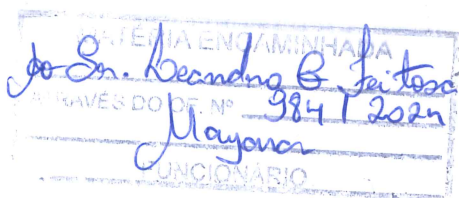 MATÉRIA ENCAMINHADA
ao Sr. Leandro G Feitosa
ATRAVÉS DO OF. Nº 984 / 2024
Mayara
FUNCIONÁRIO